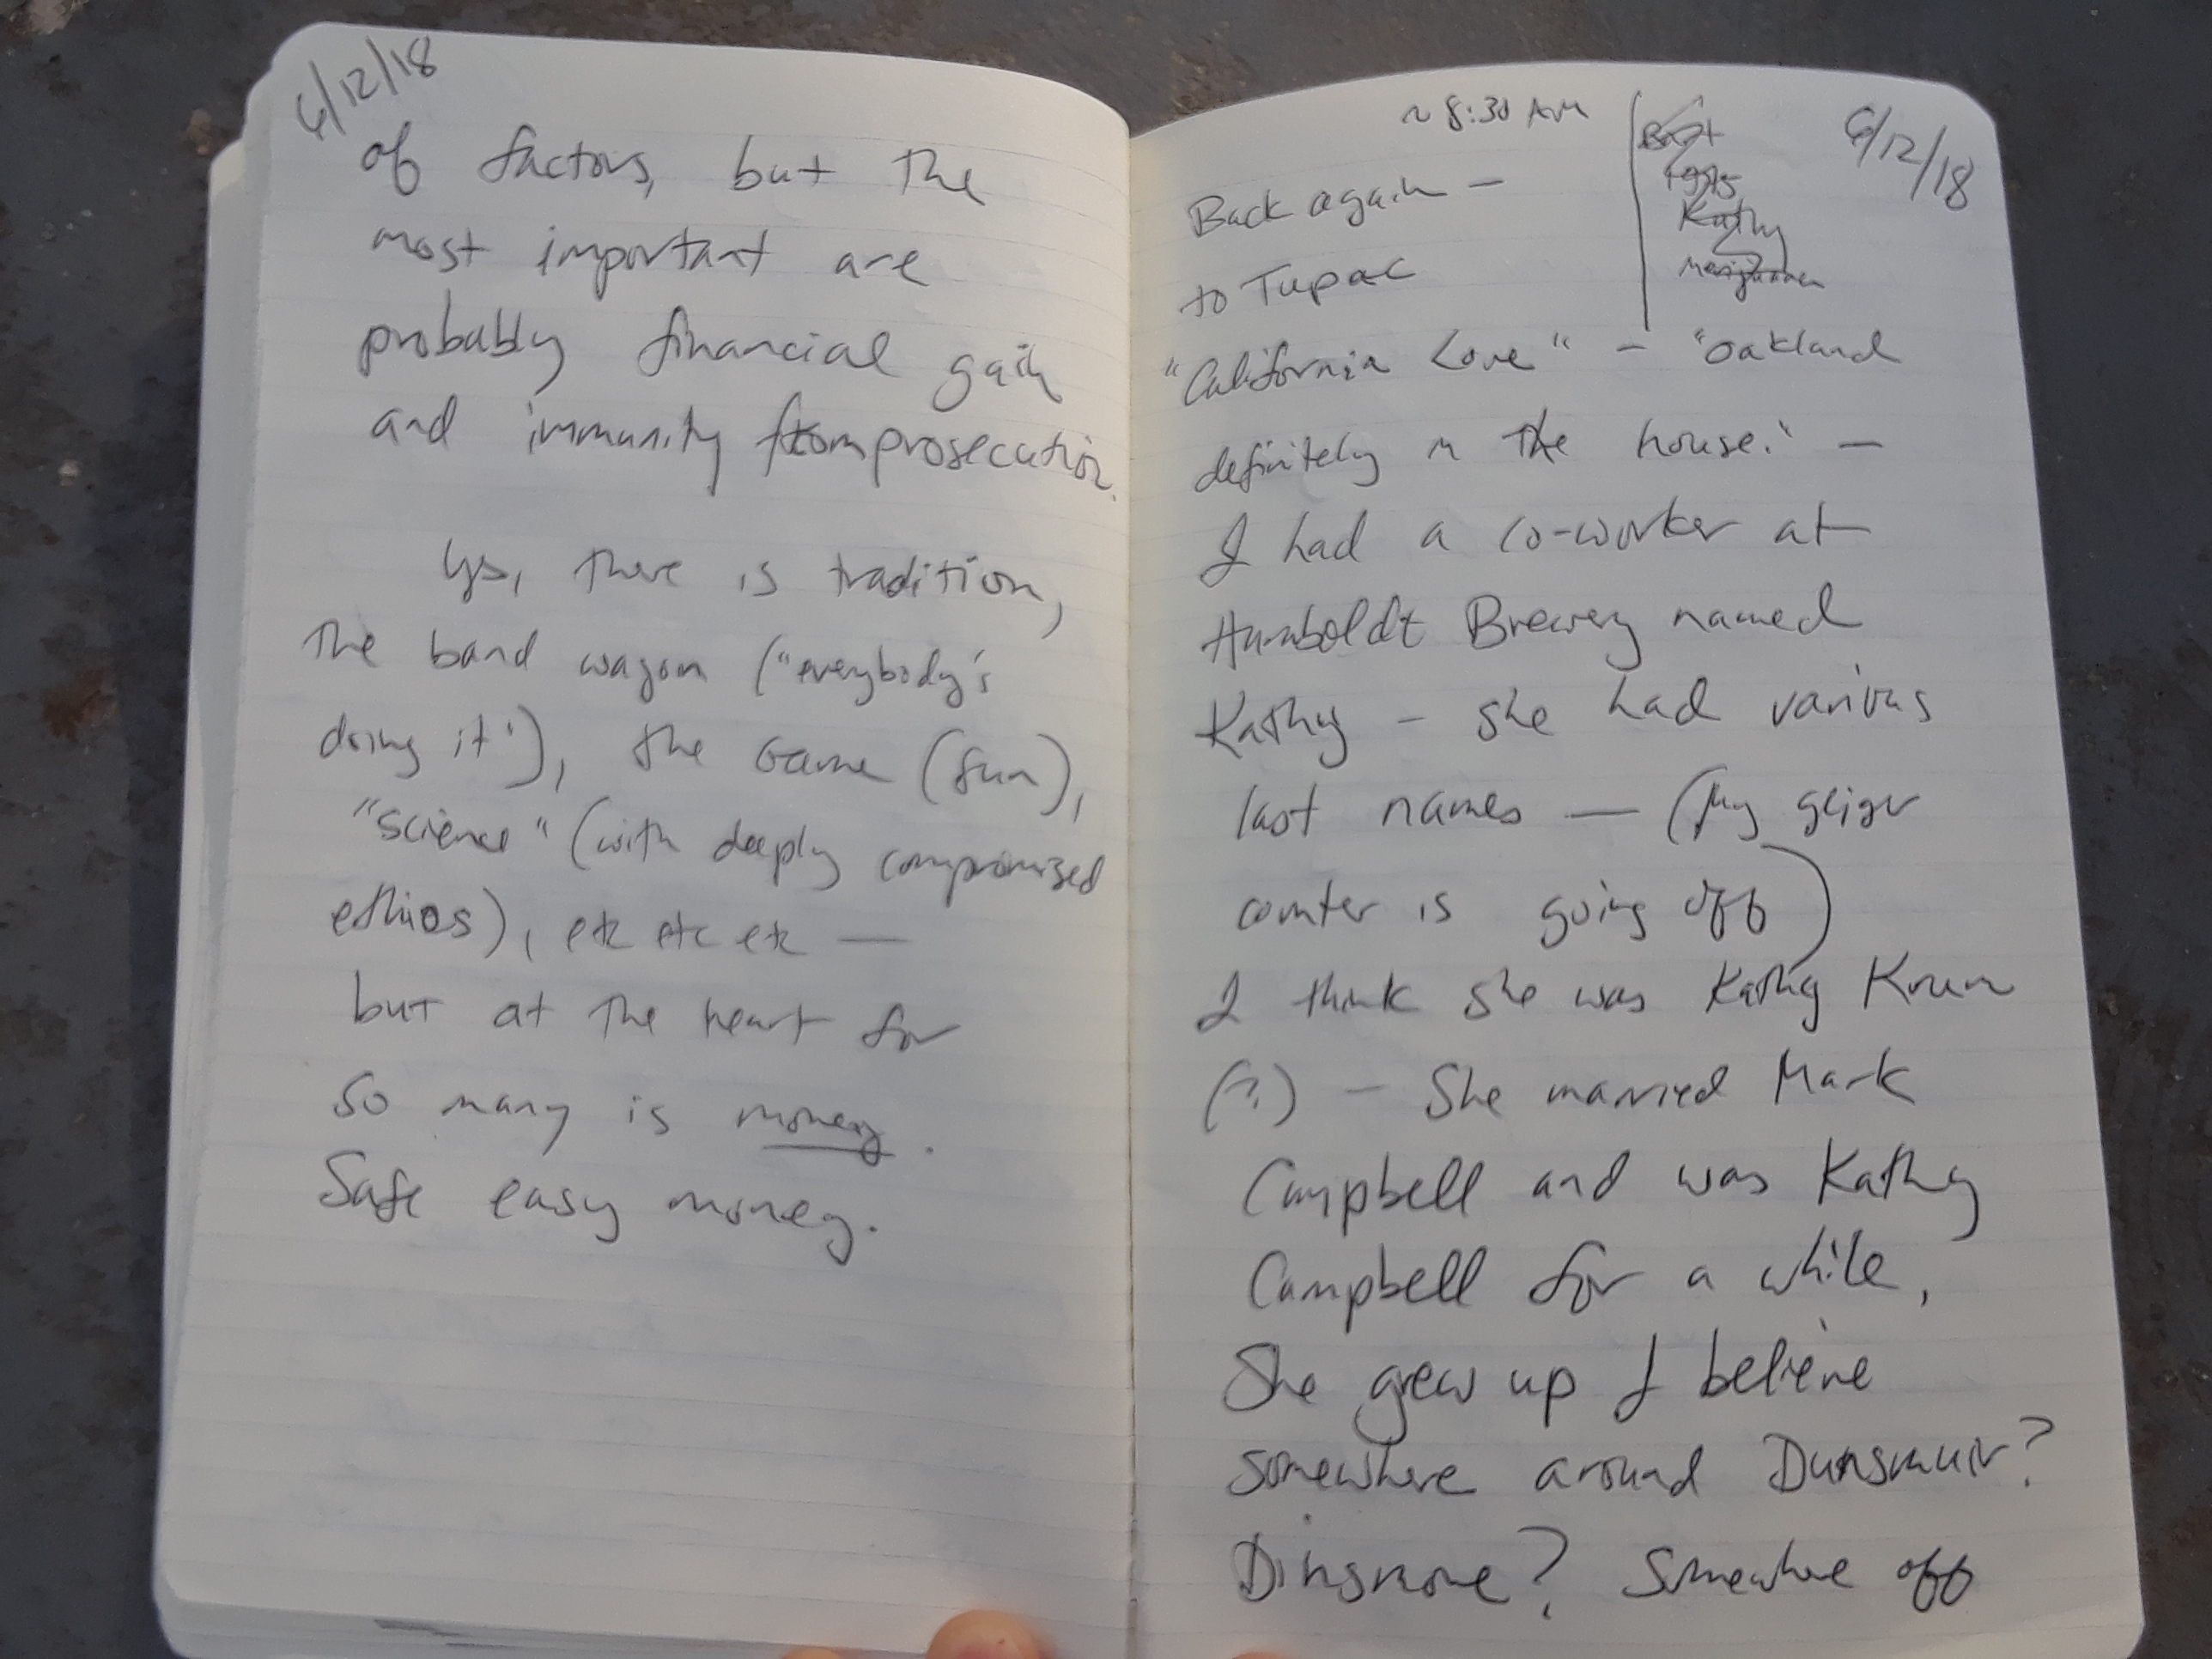 6/12/18
of factors, but the
most important are
probably financial gain
and immunity from prosecution.
Yes, there is tradition,
the band wagon ("everybody's
doing it"), the Game (fun),
"science" (with deeply compromised
ethics), etc etc etc —
but at the heart for
so many is money.
Safe easy money.
~ 8:30 AM
6/12/18
Kathy
Marijuana
Back again —
to Tupac
"California Love" — "Oakland
definitely in the house." —
I had a co-worker at
Humboldt Brewery named
Kathy — she had various
last names — (My geiger
counter is going off)
I think she was Kathy
(?) — She married Mark
Campbell and was Kathy
Campbell for a while,
She grew up I believe
somewhere around Dunsmuir?
Dinsmore? Somewhere off